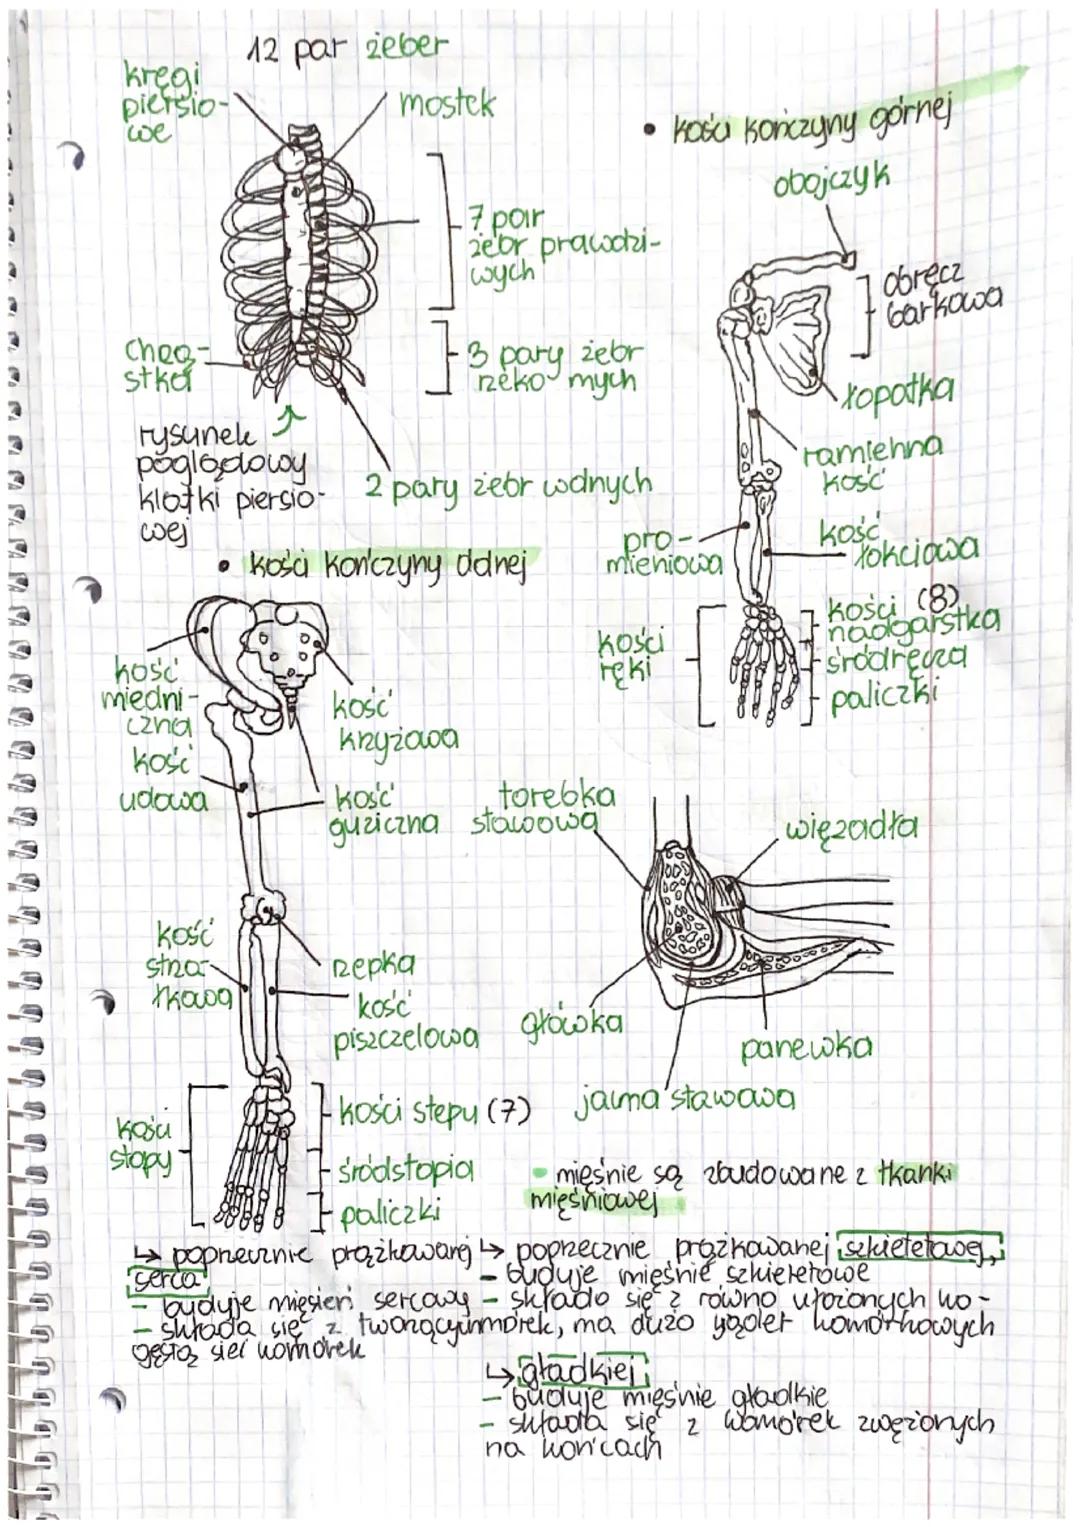 12 par żeber
kręgi
piersio-
we
mostek
7 par
żebr prawdzi-
wych
3 pary żebr
rzekomych
chrzą-
stka
rysunek
poglądowy
klatki piersio-
wej
2 pary żebr wolnych
• kości kończyny górnej
obojczyk
obręcz
barkowa
łopatka
ramienna
kość
pro-
mieniowa
kość
łokciowa
kości
ręki
kości (8)
nadgarstka
śródręcza
paliczki
• kości kończyny dolnej
kość
miedni-
czna
kość
krzyżowa
kość
udowa
kość
guziczna
kość
strza-
łkowa
rzepka
kość
piszczelowa
kości
stopy
kości stępu (7)
śródstopia
paliczki
torebka
stawowa
więzadła
główka
panewka
jama stawowa
• mięśnie są zbudowane z tkanki
mięśniowej
↳ poprzecznie prążkowanej
serca
- buduje mięsień sercowy
- składa się z tworzących
gęstą sieć komórek
↳ poprzecznie prążkowanej szkieletowej,
- buduje mięśnie szkieletowe
- składa się z równo ułożonych ko-
mórek, ma dużo jąder komórkowych
↳ gładkiej
- buduje mięśnie gładkie
- składa się z komórek zwężonych
na końcach